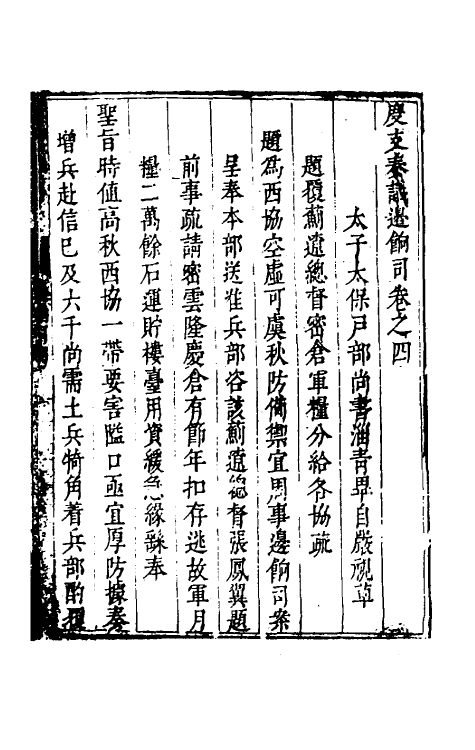 度支奏議邊餉司卷之四
太子太保戶部尚書淄青畢自嚴視草
題覆薊遼總督密倉軍糧分給各協疏
題爲西協空虛可虞秋防備禦宜周事邊餉司案
呈奉本部送准兵部咨該薊遼總督張鳳翼題
前事疏請密雲隆慶倉有節年扣存逃故軍月
糧二萬餘石運貯樓臺用資緩急緣繇奉
聖旨時值高秋西協一帶要害隘口亟宜厚防據奏
增兵赴信巳及六千尚需土兵犄角着兵部酌